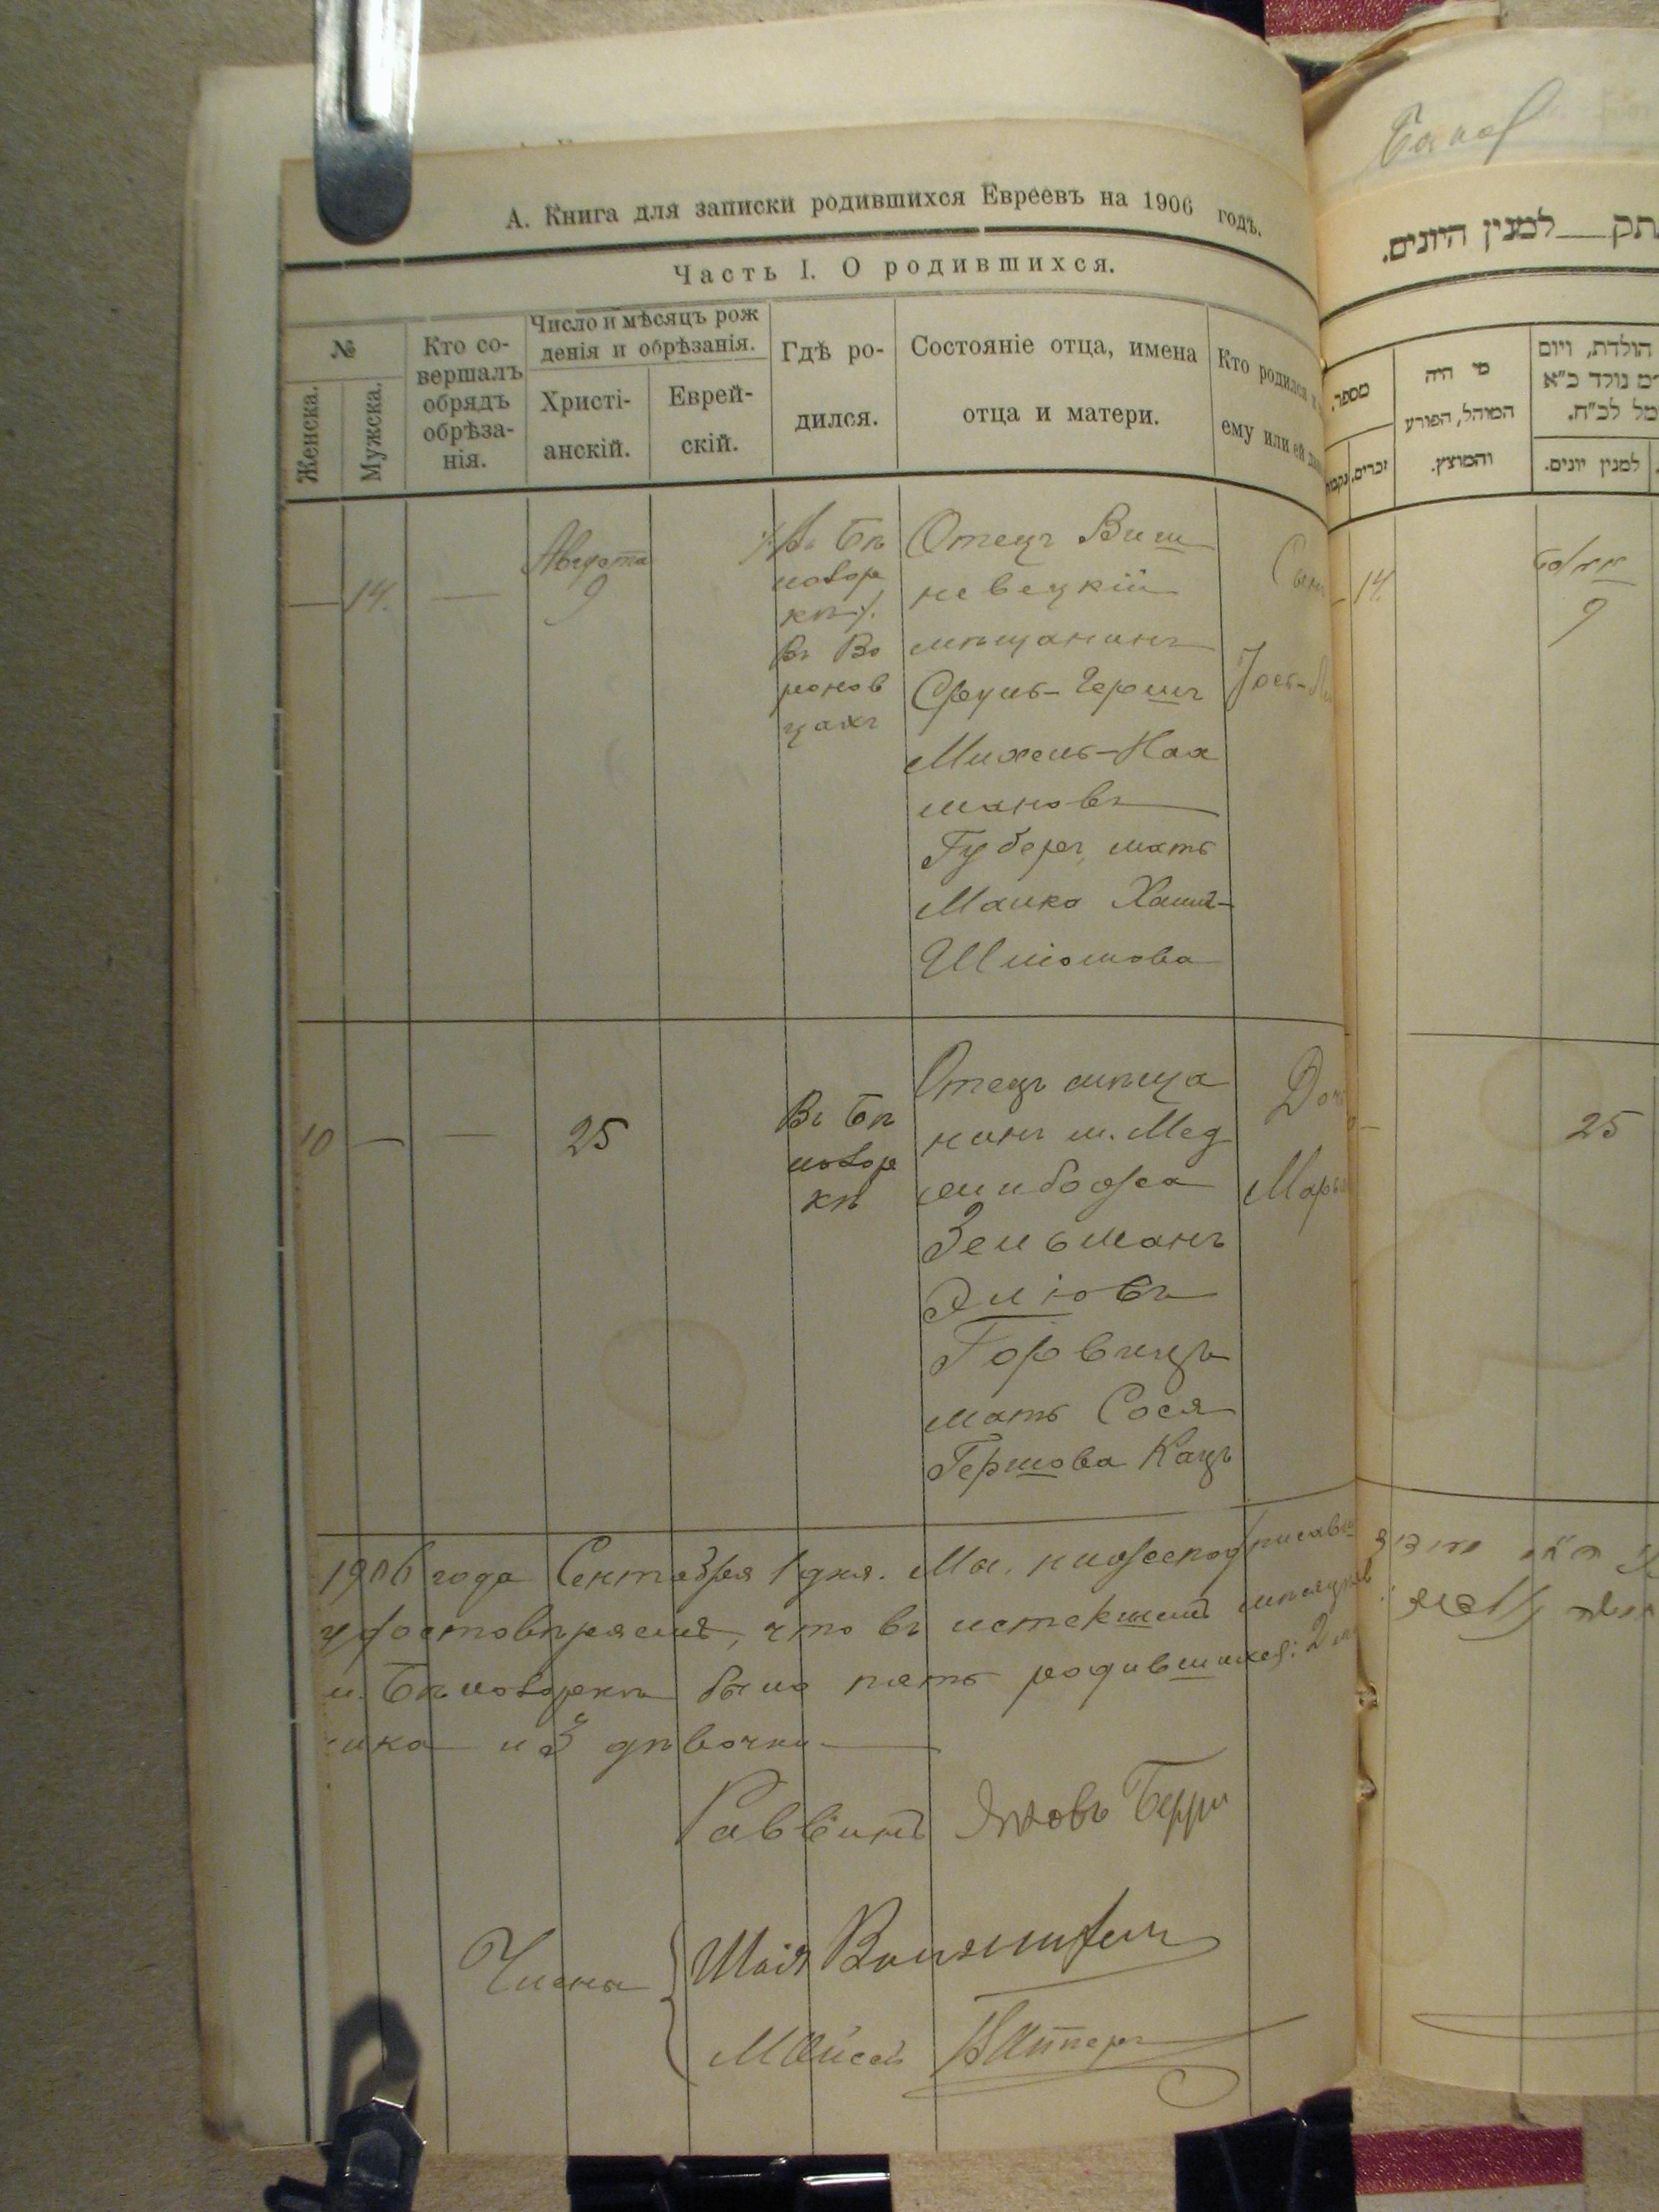 А. Книга для записки родившихся Евреевъ на 1906 годъ.
Часть I. О родившихся.
№
Женска.
Мужска.
Кто со-
вершалъ
обрядъ
обрѣза-
нія.
Число и мѣсяцъ рож
денія и обрѣзанія.
Христі-
анскій.
Еврей-
скій.
Гдѣ ро-
дился.
Состояніе отца, имена
отца и матери.
Кто родился и
ему или ей
— 14. —
Августа
9
Бѣ
логор
кѣ/.
Въ Во
ронов
цахъ
Отецъ Виш
невецкій
мѣщанинъ
Сруль-Гершъ
Михель-Нах
мановъ
Губеръ, мать
Малка Хаимъ-
Шліомова
Сынъ
Іось-
10 — —
25
Въ Бѣ
логор
кѣ
Отецъ мѣща
нинъ м. Мед
жибожа
Зельманъ
Эліовъ
Горвицъ
мать Сося
Гершова Кацъ
Доч
Марья
1906 года Сентября 1 дня. Мы, нижеподписавш
удостовѣряемъ, что въ истекшемъ мѣсяцѣ въ
м. Бѣлогоркѣ было пять родившихся: 2 м
чика и 3 дѣвочки
Раввинъ Яковъ Берри
Члены
Шая
Мойсей
למנין היונים.
מספר.
זכרים.
מי היה
המוהל, הפורע
והמוצץ.
הולדת, ויום
למנין יונים.
14.
9
25